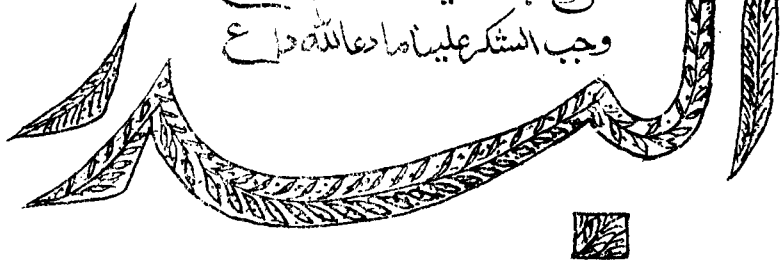 وجب الشكر علينا ما دعا لله داع
البدر